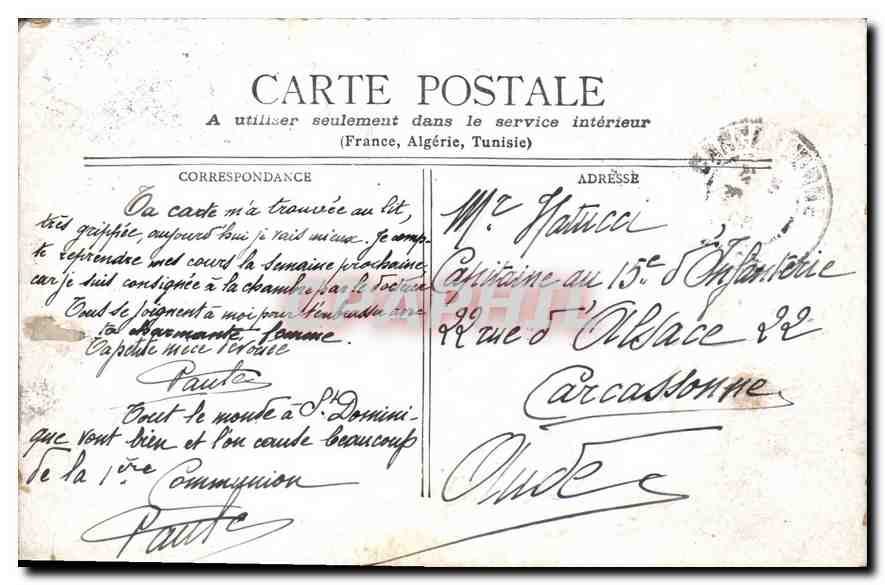 CARTE POSTALE
A utiliser seulement dans le service intérieur
(France, Algérie, Tunisie)
CORRESPONDANCE
Ta carte m'a trouvée au lit,
très grippée, aujourd'hui je vais mieux. Je comp-
te reprendre mes cours la semaine prochaine
car je suis consignée à la chambre par le docteur
Tous se joignent à moi pour t'embrasser avec
ta charmante femme.
Ta petite nièce dévouée
Tout le monde à St Domini-
que vont bien et l'on cause beaucoup
de la 1ère Communion
ADRESSE
Mr Natucci
Capitaine au 15e d'Infanterie
22 rue d'Alsace 22
Carcassonne
Aude